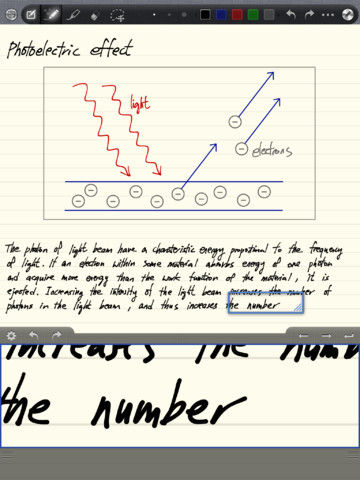 Photoelectric effect
light
electrons
The photon of light beam have a characteristic energy proportional to the frequency
of light. If an electron within some material absorbs energy of one photon
and acquire more energy than the work function of the material, it is
ejected. Increasing the intensity of the light beam increases the number of
photons in the light beam, and thus increases the number
increases the numb
the number